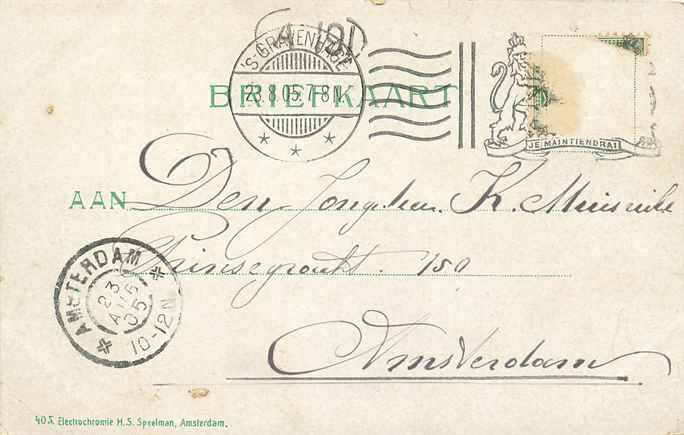 'S-GRAVENHAGE
23.8.05.7-8N.
BRIEFKAART
JE MAINTIENDRAI
AAN Den Jongeheer K.
Prinsegracht. 150
AMSTERDAM
23 AUG 05
10-12N.
Amsterdam
405. Electrochromie H.S. Speelman, Amsterdam.